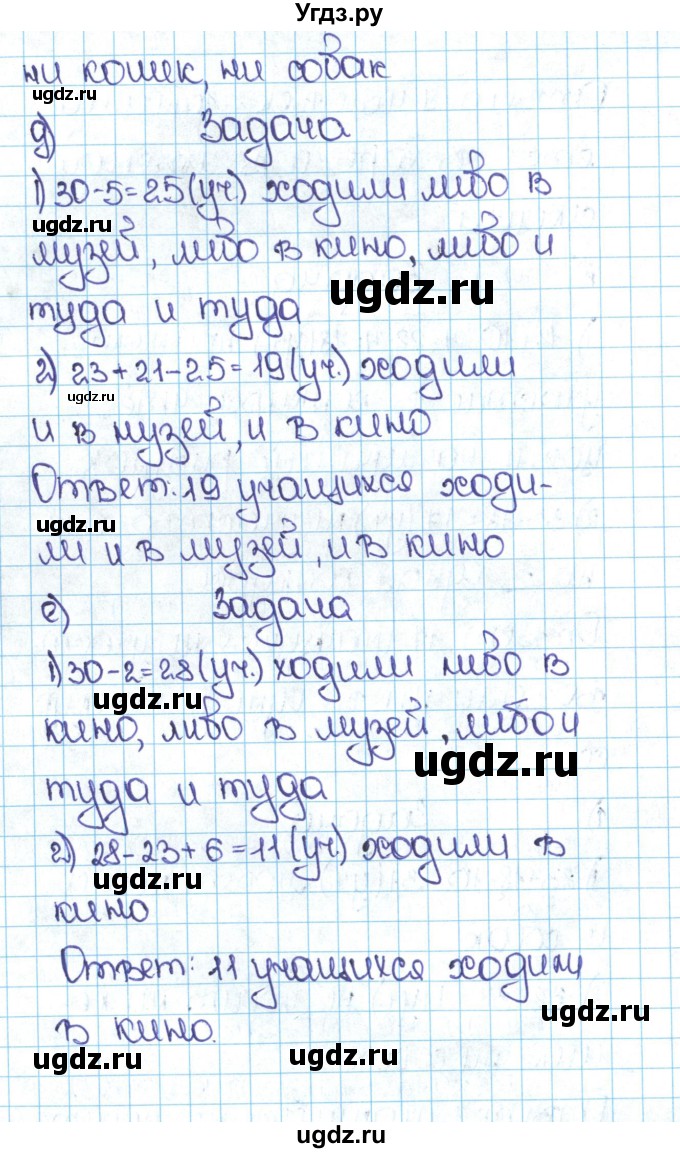 Угдз.ру
ни кошек, ни собак
ugdz.ru
д) Задача
1) 30-5=25(уч) ходили либо в
ugdz.ru
музей, либо в кино, либо и
ugdz.ru
туда и туда
2) 23+21-25=19(уч.) ходили
ugdz.ru
и в музей, и в кино
Ответ: 19 учащихся ходи-
ugdz.ru
ли и в музей, и в кино
е) Задача
1) 30-2=28(уч.) ходили либо в
ugdz.ru
кино, либо в музей, либо и
ugdz.ru
туда и туда
2) 28-23+6=11(уч.) ходили в
ugdz.ru
кино
Ответ: 11 учащихся ходили
ugdz.ru
в кино.
ugdz.ru ugdz.ru
ugdz.ru